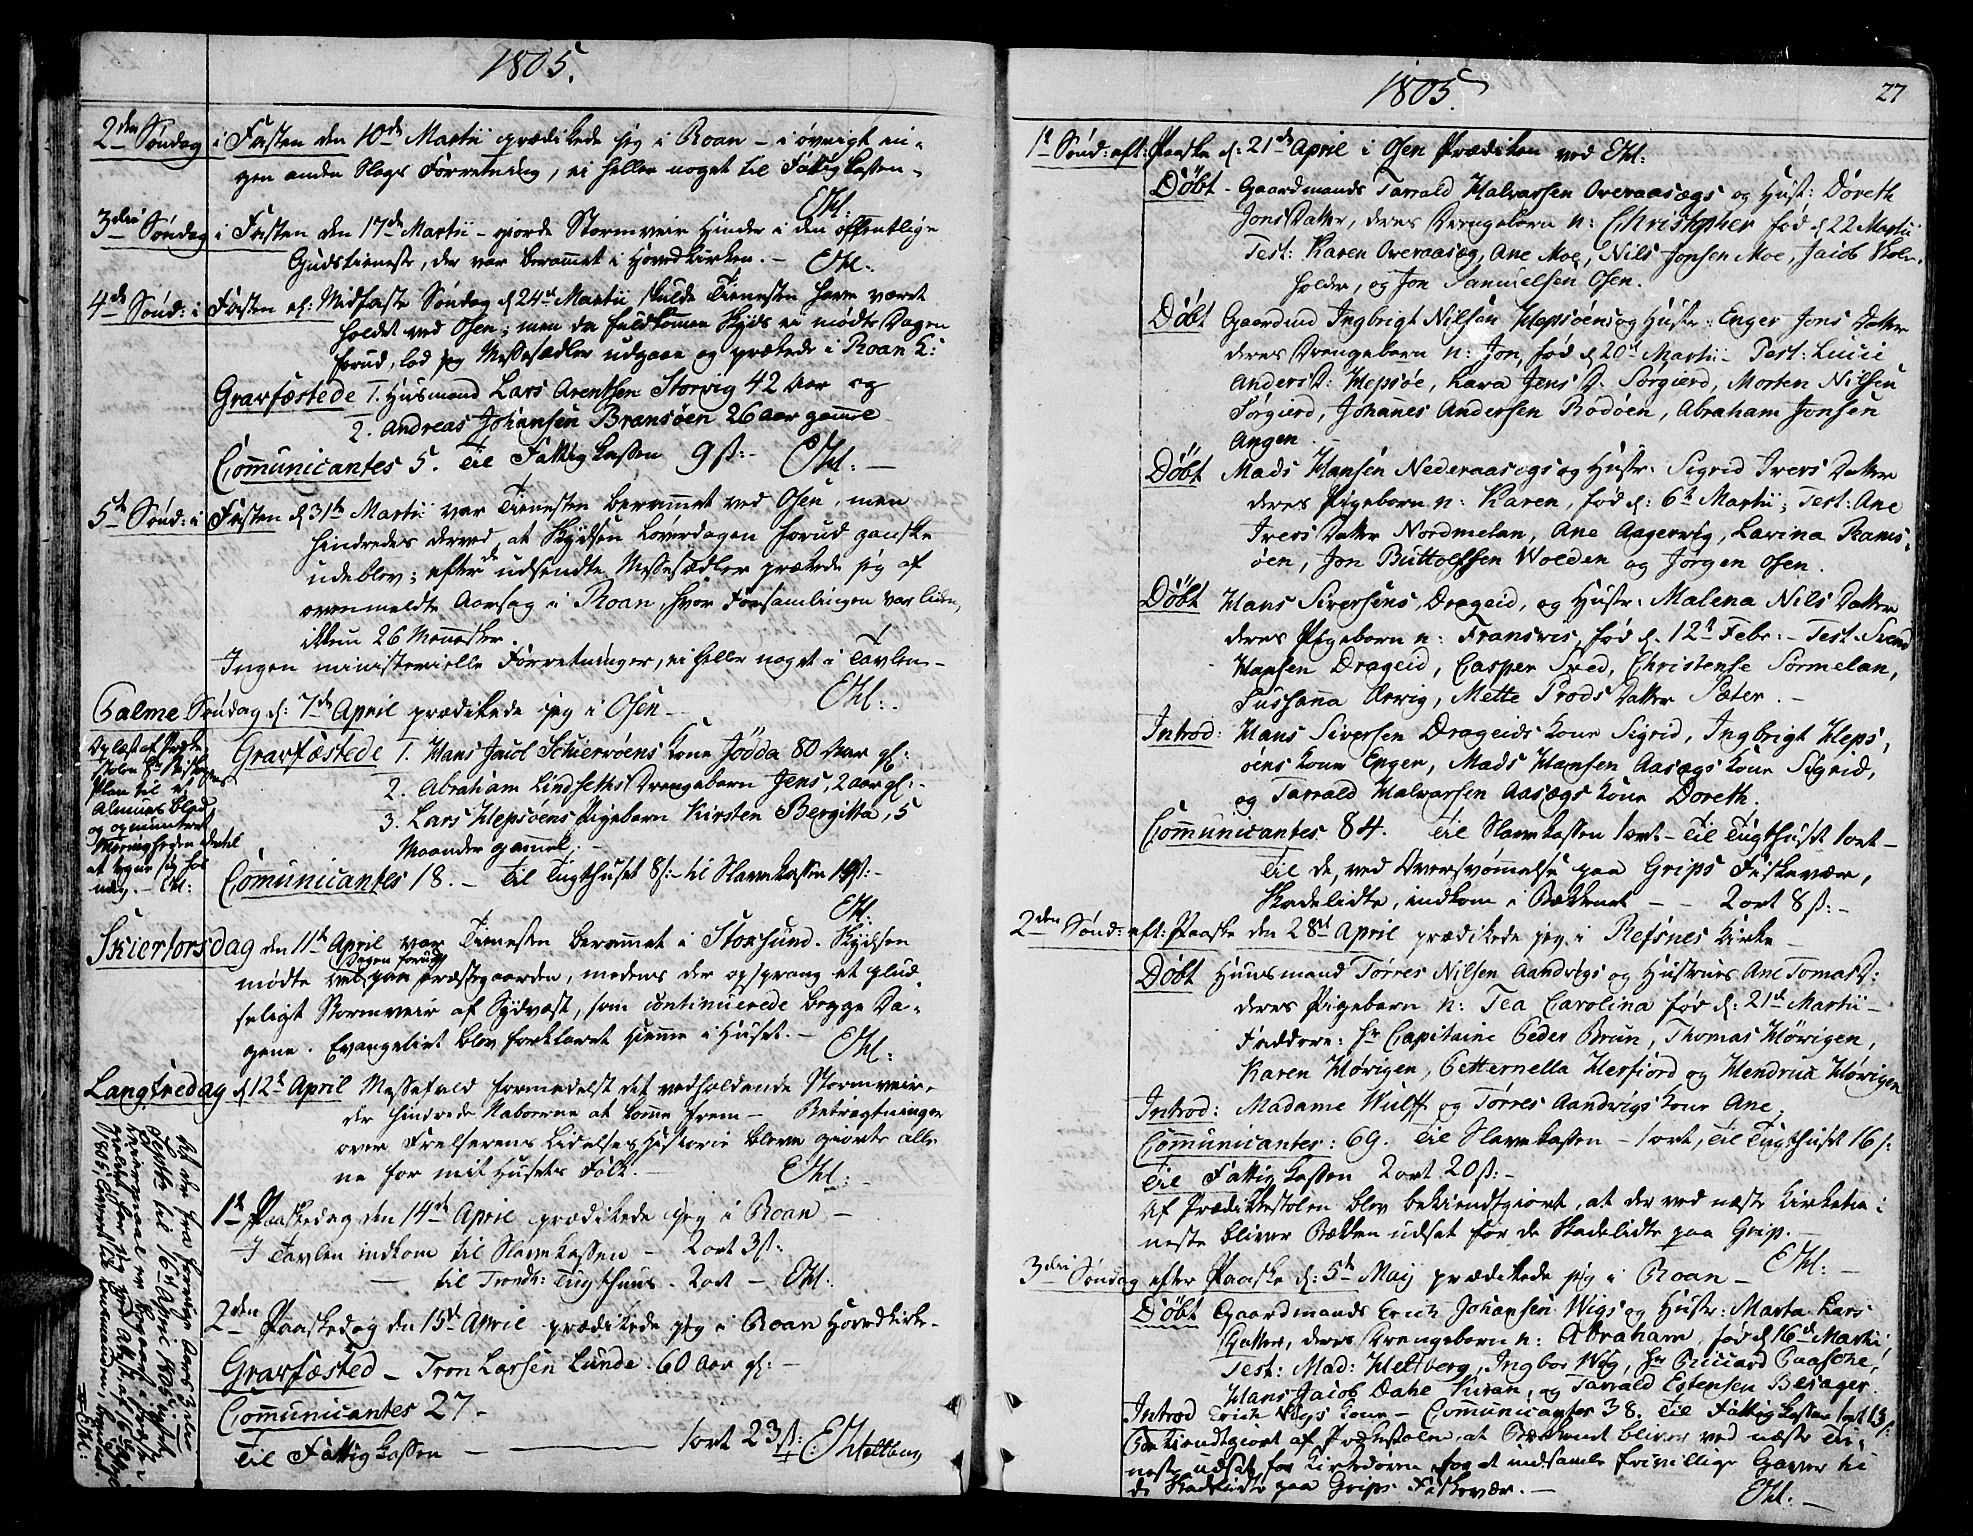 1805.
2den Søndag i Fasten den 10de Martii prædikede jeg i Roan – i øvrigt in-
gen anden Slags Forretning, ei heller noget til Fattigkassen.
EHl:
3die Søndag i Fasten den 17de Martii – giorde Stormveir Hinder i den offentlige
Gudstieneste, der var berammet i Hovedkirken. – EHl:
4de Sønd: i Fasten el: Midfaste Søndag d 24de Martii skulde Tienesten have været
holdet ved Osen; men da fuldkommen Skyds ei mødte Dagen
forud, lod jeg Messesædler udgaae og prækede i Roan K:
Gravfæstede 1. Husmand Lars Arentsen Storvig 42 Aar og
2. Andreas Johansen Bransøen 26 aar gamle
Communicantes 5. Til Fattigkassen 9 ß:– EHl: –
5te Sønd: i Fasten d 31te Martii var Tienesten berammet ved Osen, men
hindredes derved, at Skydsen Løverdagen forud ganske
udeblev; efter de udsendte Messesædler prækede jeg af
ovenmeldte Aarsag i Roan, hvor Forsamlingen var liden,
ikkun 26 Mennesker.
Ingen ministerielle Forretninger, ei heller noget i Tavlen –
EHl:
Palme Søndag d: 7de April prædikede jeg i Osen –
Oplæst af Præke-
stolen
Plan til et
Almues Blad
og opmuntret
Menigheden
at tegne sig hos
mig. – EHl:
Gravfæstede 1. Hans Jacob Schiervøens Kone Jødda 80 Aar gl:
2. Abraham Lindseths Drengebarn Jens, 2 aar gl: –
3. Lars Hepsøens Pigebarn Kirsten Bergitta, 5
Maaneder gammel. –
Communicantes 18. – Til Tugthuset 8 ß:– til Slavekassen 19 ß:–
EHl:
Skiertorsdag den 11te April var Tienesten berammet i Stoksund. Skydsen
mødte Dagen forud paa Præstegaarden, medens der opsprang et plud-
seligt Stormveir af Sydvest, som continuerede begge Da-
gene. Evangeliet blev forklaret hiemme i Huset. –
EHl:
Langfredag d 12te April Messefald formedelst det vedholdende Stormveir,
der hindrede Naboerne at komme frem – Betragtninger
over Frelserens Lidelses Historie bleve giorte alle-
ne for mit Husets Folk. – EHl: –
1ste Paaskedag den 14de April prædikede jeg i Roan –
I Tavlen indkom til Slavekassen – 2 ort 3 ß:
– til Trondh: Tugthuus. 2 ort – EHl:
2den Paaskedag den 15de April prædikede jeg i Roan Hovedkirke.
Gravfæsted – Tron Larsen Lunde. 60 Aar gl: –
Communicantes 27 –
Til Fattigkassen – 1 ort 23 ß: EHeltberg
1805.
27
1te Sønd: eft: Paaske d: 21de April i Osen Prædiken ved EHl:
Døbt – Gaardmands Tarrald Halvarsen Overaasægs og Hust: Døreth
Jons Datter, deres Drengebarn n: Christopher fød d 22 Martii
Test: Karen Overaasæg, Ane Moe, Nils Jonsen Moe, Jacob Skole-
holder, og Jon Samuelsen Osen.
Døbt Gaardmd Ingbrigt Nilsen Hepsøens og Hustr: Enger Jons Datter
deres Drengebarn n: Jon, fød d 20de Martii – Test: Lucie
Anders D: Hepsøe, Lava Jens D. Sørgierd, Morten Nilsen
Sørgierd, Johannes Andersen Rødøen, Abraham Jonsen
Angen.
Døbt Mads Hansen Nederaasægs og Hustr: Sigrid Ivers Datter
deres Pigebarn n: Karen, fød d: 6te Martii; Test: Ane
Ivers Datter Nordmelan, Ane Aagervig, Lavina Rams-
øen, Jon Buttolfsen Wolden og Jørgen Osen.
Døbt Hans Siversens Drageid, og Hustr: Malena Nils Datter
deres Pigebarn n: Fransvis, fød d. 12te Febr: – Test. Svend
Hansen Drageid, Casper Sved, Christense Sørmelan,
Sussanna Arvig, Mette Trods Datter Sæter. –
Introd: Hans Siversen Drageids Kone Sigrid, Ingbrigt Heps-
øens Kone Enger, Mads Hansen Aasægs Kone Sigrid,
og Tarrald Halvarsen Aasægs Kone Doreth.
Communicantes 84. Til Slavekassen 1 ort – Til Tugthuset 1 ort –
Til de, ved Oversvømmelse paa Grips Fiskevær,
Skadelidte, indkom i Bækkenet – – 2 ort 8 ß:–
2den Sønd: eft: Paaske den 28de April prædikede jeg i Refsnes Kirke –
Døbt Huusmand Tørres Nilsen Aandvigs og Hustrues Ane Tomas D:
deres Pigebarn n: Tea Carolina fød d: 21de Martii –
Faddere: Hr Capitaine Peder Brun, Thomas Hövigen,
Karen Hövigen, Petternella Herfiord og Hendrica Hövigen
Introd: Madame Wulff og Tørres Aandvigs Kone Ane.
Communicantes: 69. Til Slavekassen – 1 ort, Til Tugthuset 16 ß:
Til Fattigkassen 2 ort 20 ß: –
Af Prædikestolen blev bekiendtgiort, at der ved næste Kirketie-
neste bliver Bækken udsat for de Skadelidte paa Grip. –
EHl: –
3die Søndag efter Paaske d: 5te Maij prædikede jeg i Roan –
Døbt Gaardmands Erich Johansen Wigs og Hustr: Marta Lars
Datter, deres Drengebarn n: Abraham, fød d 16de Martii
Test: Mad: Heltberg, Ingbor Wiig, Hr Richard Paasche,
Hans Jacob Dahe Kiran, og Tarrald Estensen Besager.
Introd Erich Wigs Kone – Communicantes 38. Til Fattigkassen 1 ort 13 ß:
Bekiendtgiort af Prækestolen, at Bækkenet bliver ved næste Tie-
neste udsat for Kirkedøren for at indsamle frivillige Gaver til
de Skadelidte paa Grips Fiskevær. –
EHl: –